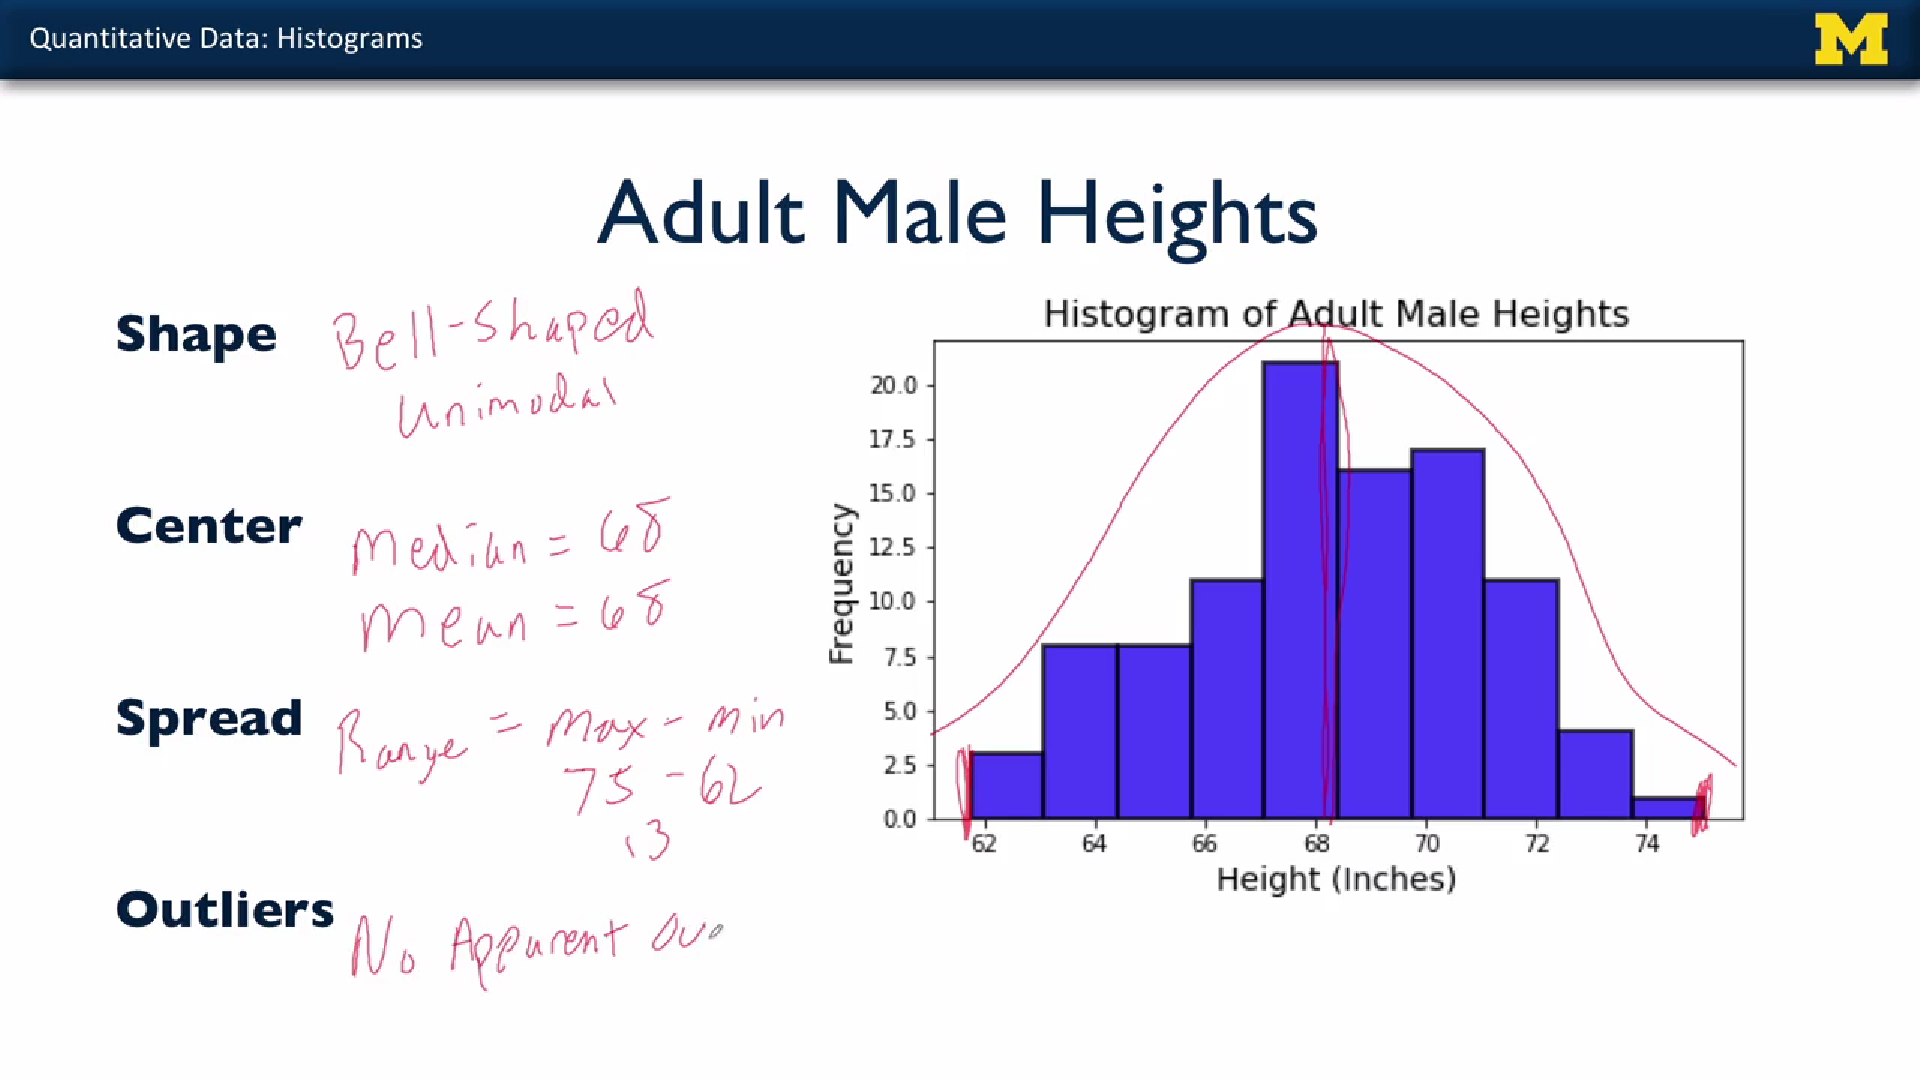 Quantitative Data: Histograms
M
Adult Male Heights
Shape
Bell-Shaped
Unimodal
Center
Median = 68
Mean = 68
Spread
Range = Max - min
75 - 62
13
Outliers
No Apparent ou
Histogram of Adult Male Heights
Frequency
20.0
17.5
15.0
12.5
10.0
7.5
5.0
2.5
0.0
62 64 66 68 70 72 74
Height (Inches)